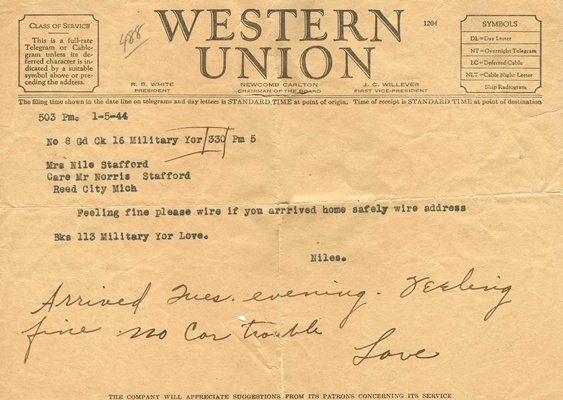 CLASS OF SERVICE
This is a full-rate
Telegram or Cable-
gram unless its de-
ferred character is in-
dicated by a suitable
symbol above or pre-
ceding the address.
488
WESTERN
UNION
1204
R. B. WHITE
PRESIDENT
NEWCOMB CARLTON
CHAIRMAN OF THE BOARD
J. C. WILLEVER
FIRST VICE-PRESIDENT
SYMBOLS
DL=Day Letter
NT=Overnight Telegram
LC=Deferred Cable
NLT=Cable Night Letter
Ship Radiogram
The filing time shown in the date line on telegrams and day letters is STANDARD TIME at point of origin. Time of receipt is STANDARD TIME at point of destination
503 Pm. 1-5-44
No 8 Gd Ck 16 Military Yor 330 Pm 5
Mrs Nile Stafford
Care Mr Norris Stafford
Reed City Mich
Feeling fine please wire if you arrrived home safely wire address
Bks 113 Military Yor Love.
Niles.
Arrived Tues. evening. Feeling
fine no Car trouble
Love
THE COMPANY WILL APPRECIATE SUGGESTIONS FROM ITS PATRONS CONCERNING ITS SERVICE